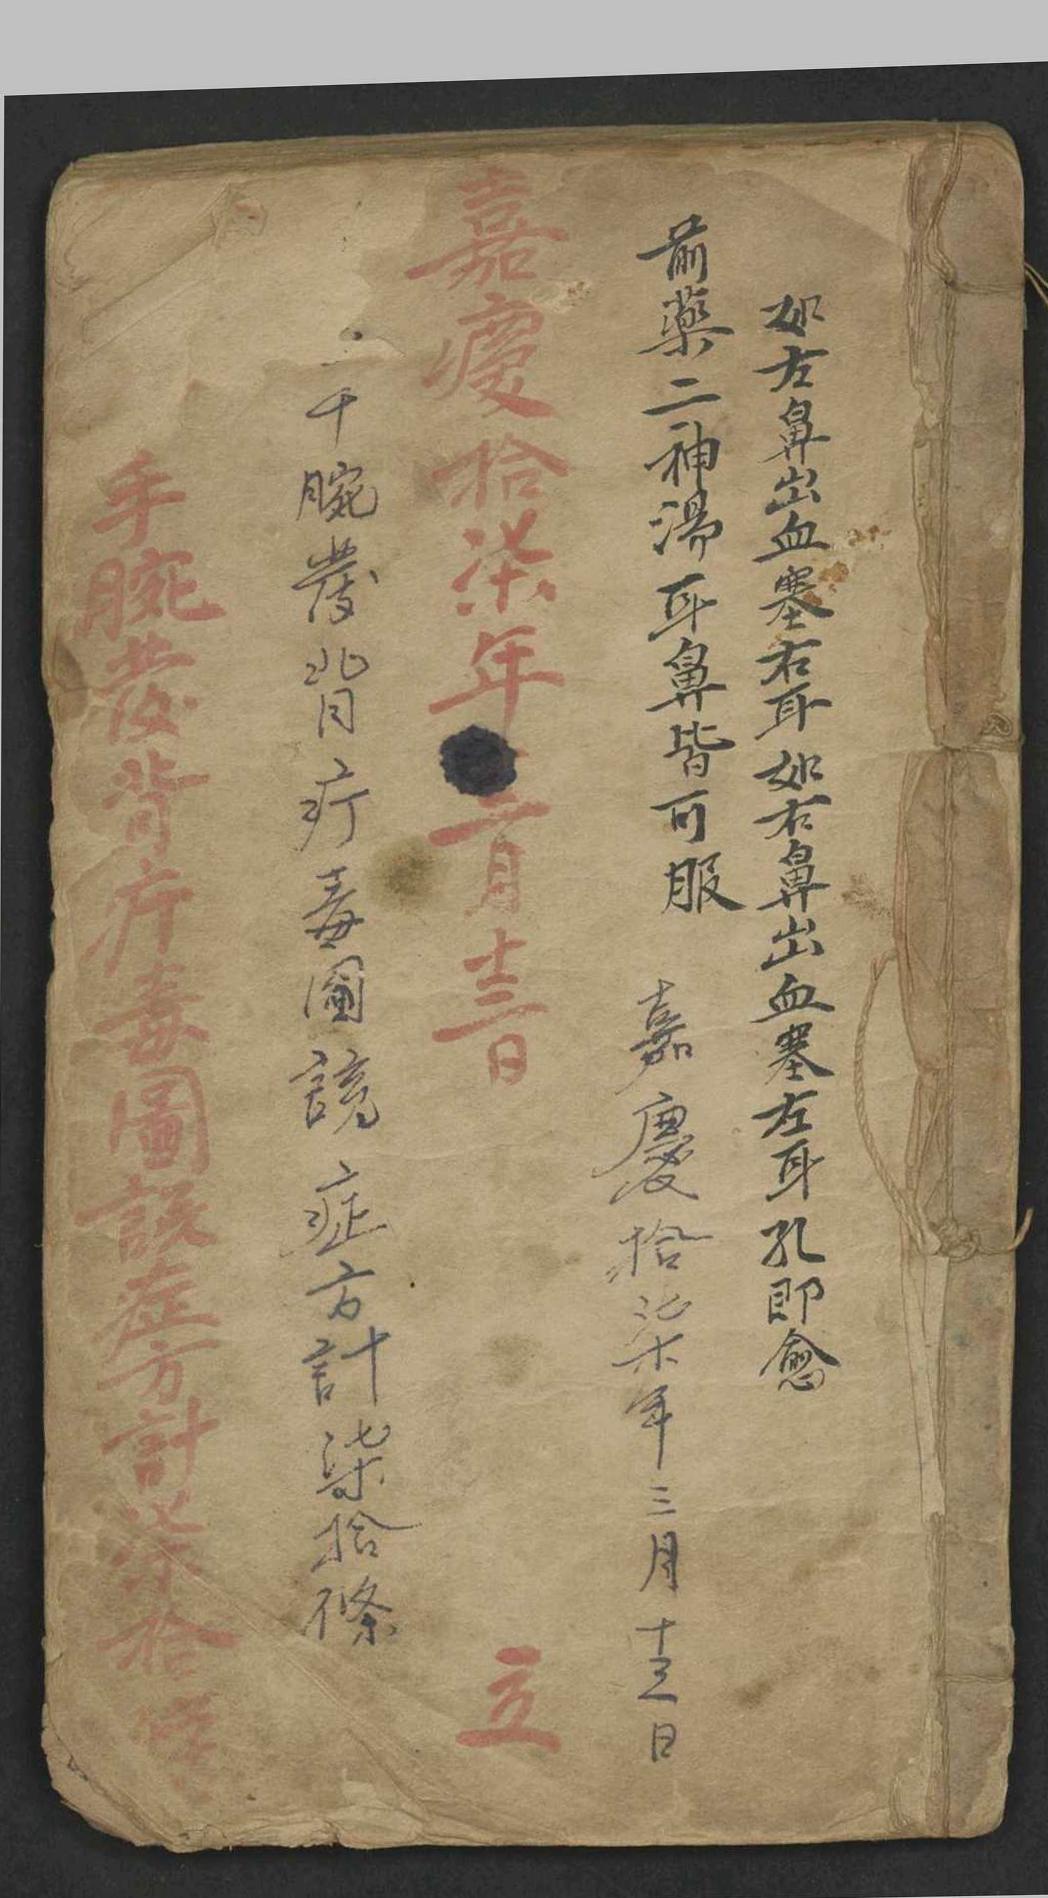 如左鼻出血塞右耳如右鼻出血塞左耳孔即愈
前藥二神湯耳鼻皆可服 嘉慶拾柒年三月十三日
嘉慶拾柒年三月十三日 立
腕發背疔毒圖 症方計柒拾條
手腕發背疔毒圖説症方計柒拾